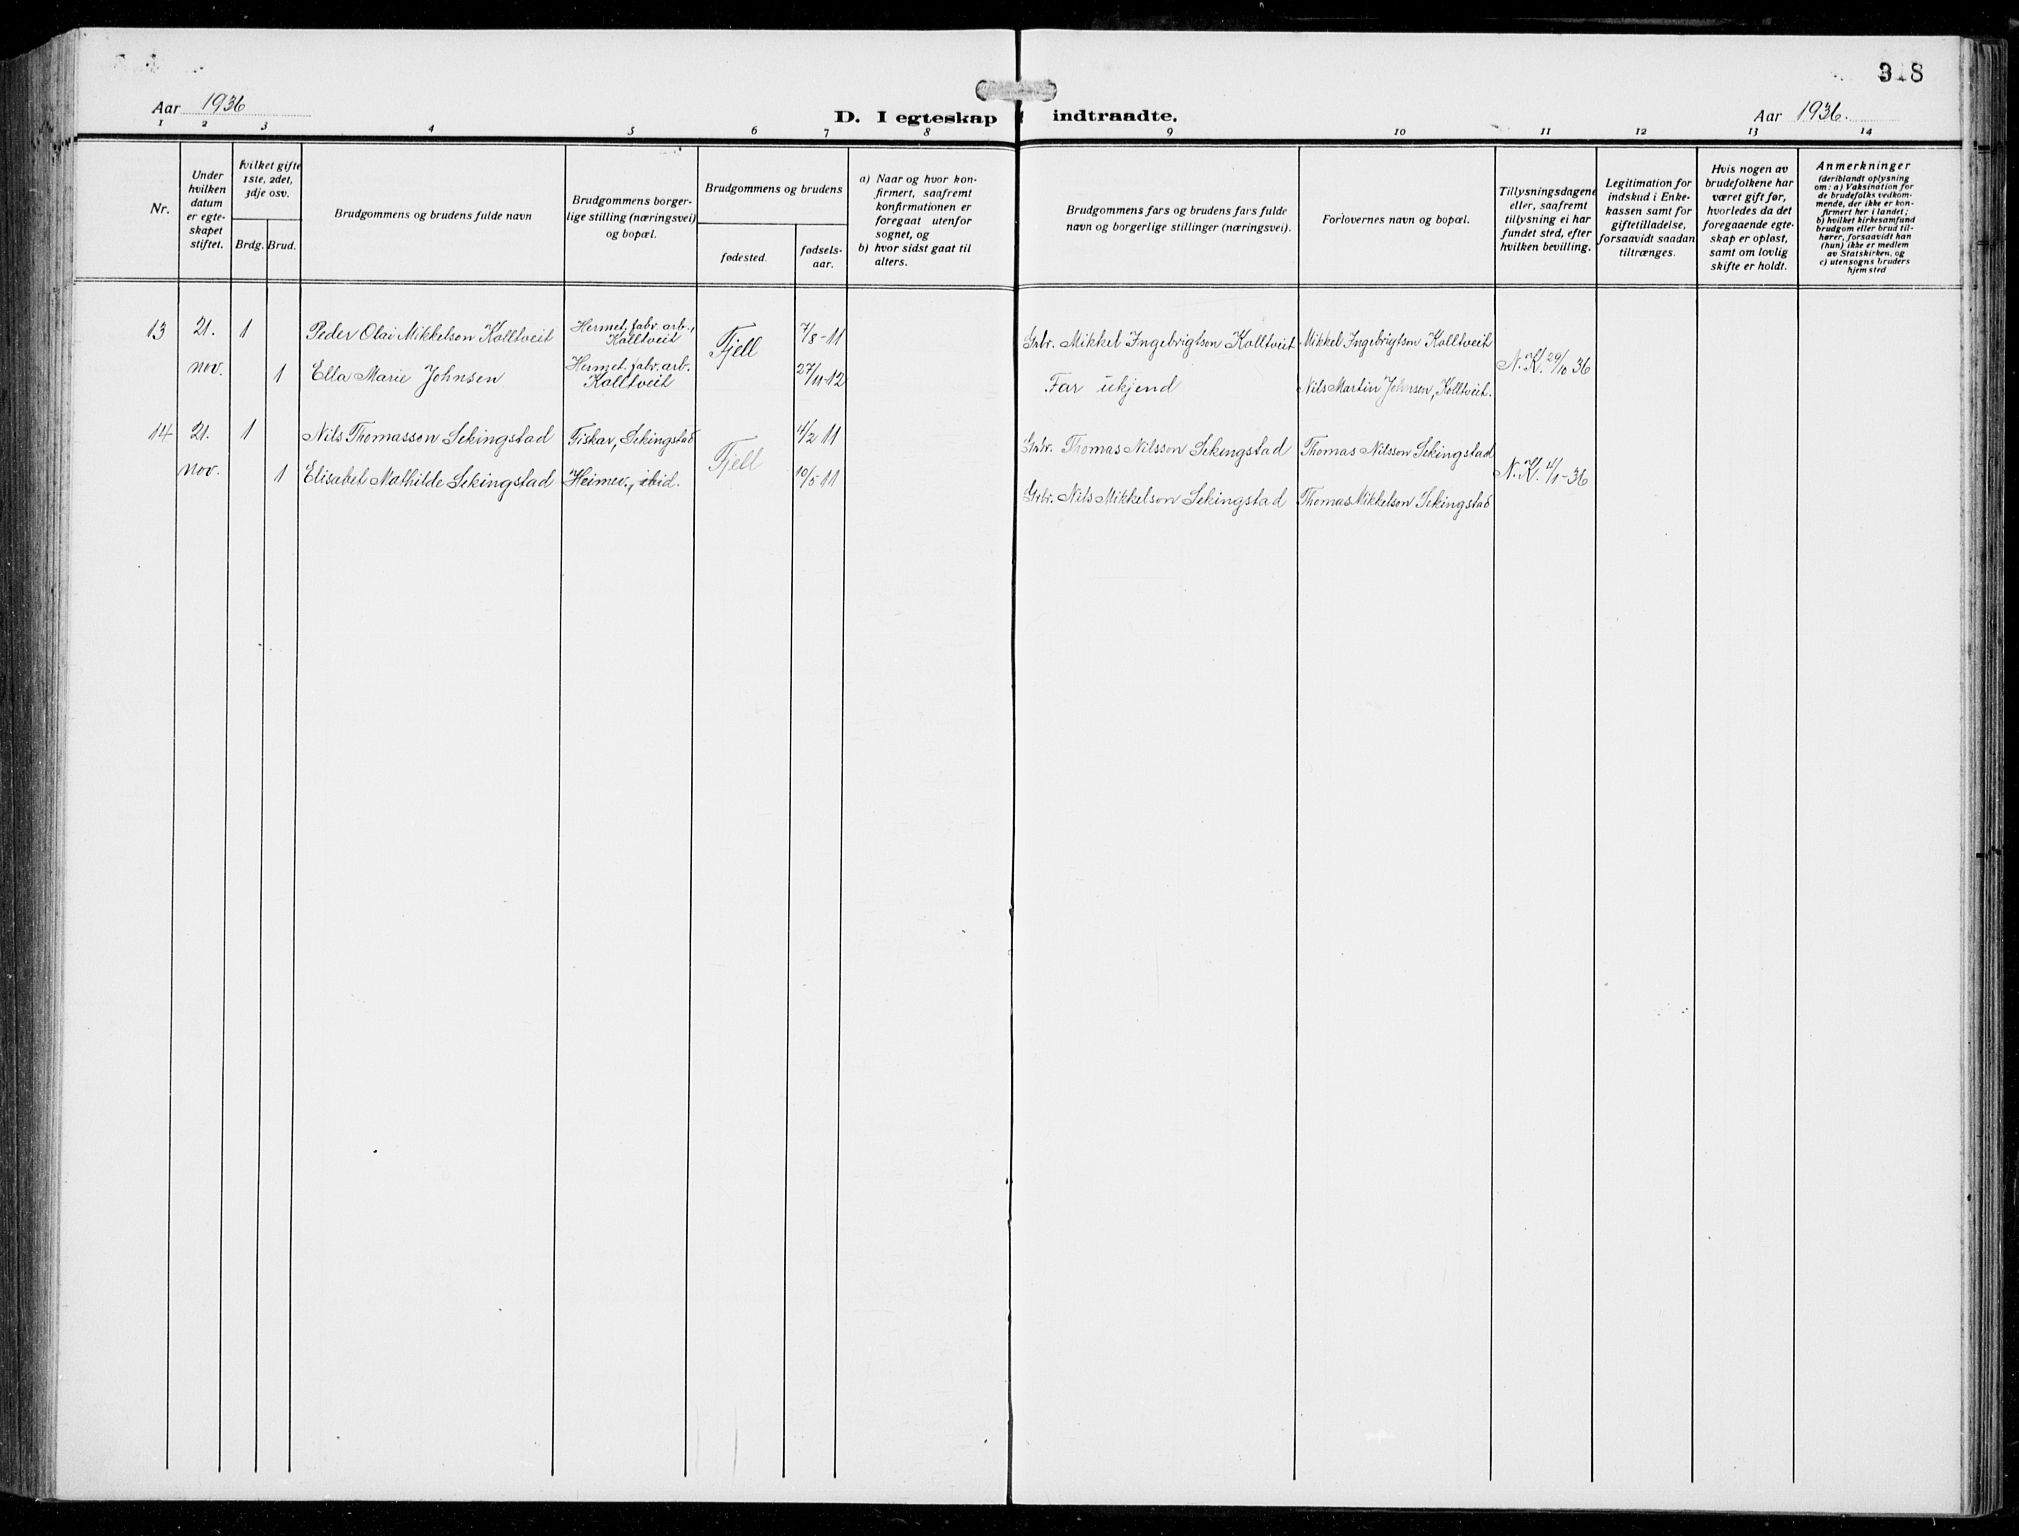 318
Aar 1936
D. I egteskap indtraadte.
Aar 1936.
1 2 3 4 5 6 7 8 9 10 11 12 13 14
Nr.
Under
hvilken
datum
er egte-
skapet
stiftet.
Hvilket gifte
1ste, 2det,
3dje osv.
Brdg. Brud.
Brudgommens og brudens fulde navn
Brudgommens borger-
lige stilling (næringsvei)
og bopæl.
Brudgommens og brudens
fødested.
fødsels-
aar.
a) Naar og hvor kon-
firmert, saafremt
konfirmationen er
foregaat utenfor
sognet, og
b) hvor sidst gaat til
alters.
Brudgommens fars og brudens fars fulde
navn og borgerlige stillinger (næringsvei).
Forlovernes navn og bopæl.
Tillysningsdagene
eller, saafremt
tillysning ei har
fundet sted, efter
hvilken bevilling.
Legitimation for
indskud i Enke-
kassen samt for
giftetilladelse,
forsaavidt saadan
tiltrænges.
Hvis nogen av
brudefolkene har
været gift før,
hvorledes da det
foregaaende egte-
skap er opløst,
samt om lovlig
skifte er holdt.
Anmerkninger
(deriblandt oplysning
om: a) Vaksination for
de brudefolks vedkom-
mende, der ikke er kon-
firmert her i landet;
b) hvilket kirkesamfund
brudgom eller brud til-
hører, forsaavidt han
(hun) ikke er medlem
av Statskirken, og
c) utensogns bruders
hjemsted
13 21. 1 Peder Olai Mikkelson Kolltveit Hermet. fabr. arb., Kolltveit Fjell 7/8-11 Gnbr. Mikkel Ingebrigtson Kolltveit Mikkel Ingebrigtson Kolltveit N. Kl. 29/10 36
nov. 1 Ella Marie Johnsen Hermet. fabr. arb. Kolltveit 27/11-12 Far ukjend Nils Martin Johnsen, Kolltveit.
14 21. 1 Nils Thomasson Sekingstad Fiskar, Sekingstad Fjell 4/2 11 Gnbr. Thomas Nilsson Sekingstad Thomas Nilsson Sekingstad N. Kl. 4/11-36
nov. 1 Elisabet Mathilde Sekingstad Heimev., ibid. 10/5 11 Gnbr. Nils Mikkelson Sekingstad Thomas Mikkelson Sekingstad